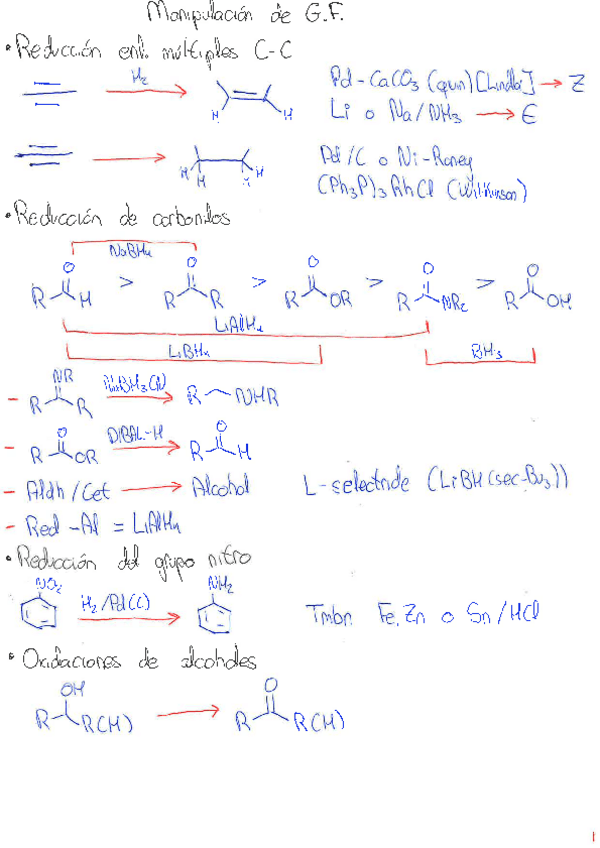 Manipulación de G.F.
• Reducción enl. múltiples C-C
H₂
H H
Pd-CaCO₃ (quin) [Lindlar] → Z
Li o Na/NH₃ → E
H H H H
Pd/C o Ni-Raney
(Ph₃P)₃RhCl (Wilkinson)
• Reducción de carbonilos
NaBH₄
O O O O O
R H > R R > R OR > R NR₂ > R OH
LiAlH₄
LiBH₄ BH₃
- NR R R NaBH₃CN → R NHR
- O R OR DIBAL-H → O R H
- Aldh/Cet → Alcohol L-selectride (LiBH(sec-Bu₃))
- Red-Al = LiAlH₄
• Reducción del grupo nitro
NO₂ H₂/Pd(C) → NH₂ Tmbn Fe, Zn o Sn/HCl
• Oxidaciones de alcoholes
OH O
R R(H) → R R(H)
1